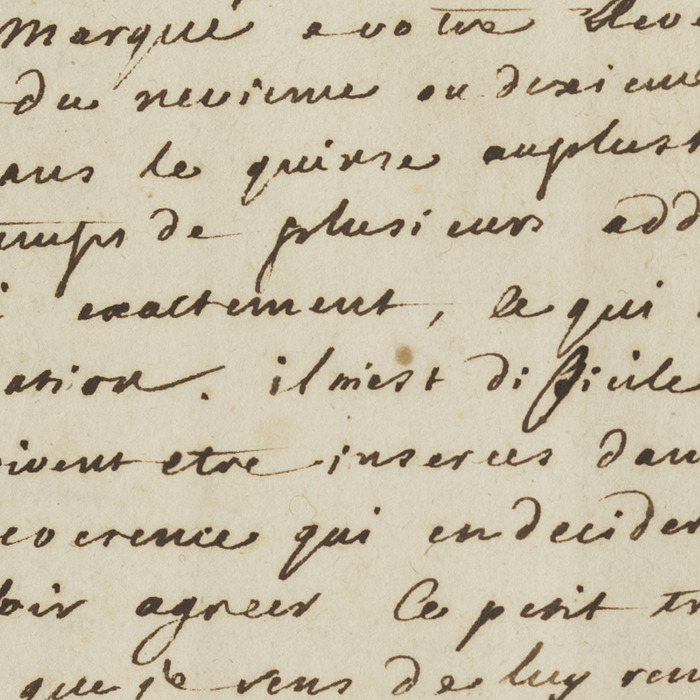 marqué a votre Rev
du nevieme ou dixieme
ans le quinse auplust
emps de plusieurs add
i exactement, ce qui
ation. il m'est dificile
ivent etre inserees dan
everence qui en decider
oir agreer Ce petit tr
que je vens de luy ren